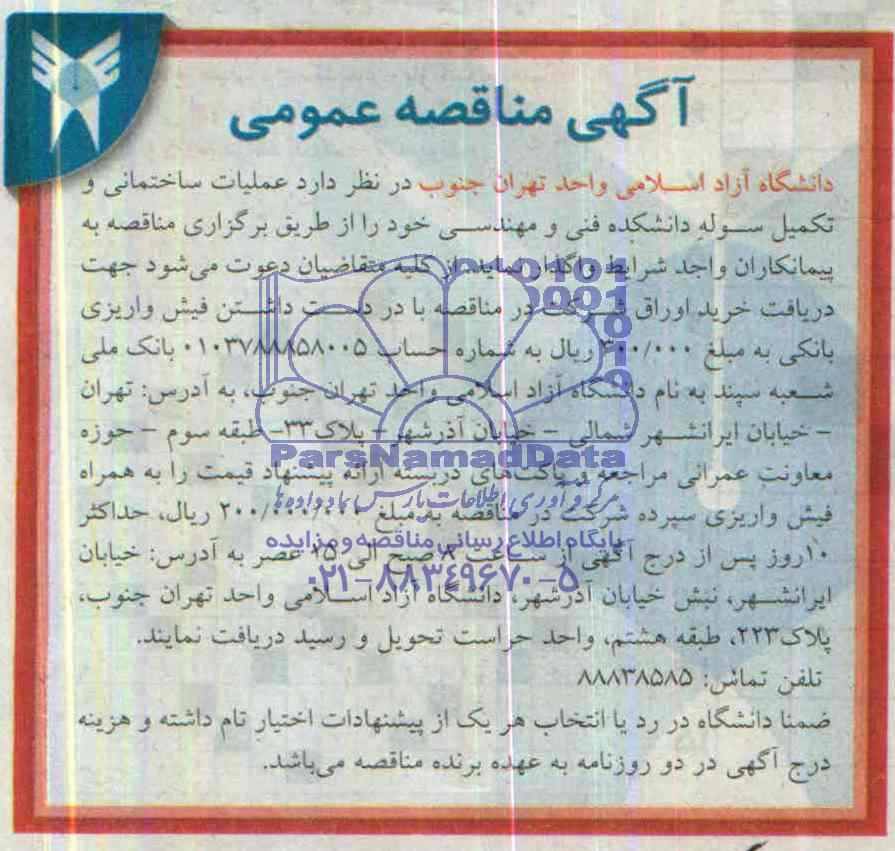 آگهی مناقصه عمومی
دانشگاه آزاد اسلامی واحد تهران جنوب در نظر دارد عملیات ساختمانی و
تکمیل سوله دانشکده فنی و مهندسی خود را از طریق برگزاری مناقصه به
پیمانکاران واجد شرایط واگذار نماید. از کلیه متقاضیان دعوت می‌شود جهت
دریافت خرید اوراق شرکت در مناقصه با در دست داشتن فیش واریزی
بانکی به مبلغ ۳۰۰/۰۰۰ ریال به شماره حساب ۰۱۰۳۷۸۸۸۵۸۰۰۵ بانک ملی
شعبه سپند به نام دانشگاه آزاد اسلامی واحد تهران جنوب، به آدرس: تهران
- خیابان ایرانشهر شمالی - خیابان آذرشهر - پلاک ۳۳- طبقه سوم - حوزه
معاونت عمرانی مراجعه و پاکت‌های دربسته ارائه پیشنهاد قیمت را به همراه
فیش واریزی سپرده شرکت در مناقصه به مبلغ ۲۰۰/۰۰۰/۰۰۰ ریال، حداکثر
۱۰روز پس از درج آگهی از ساعت ۸ صبح الی ۱۵ عصر به آدرس: خیابان
ایرانشهر، نبش خیابان آذرشهر، دانشگاه آزاد اسلامی واحد تهران جنوب،
پلاک۲۲۳، طبقه هشتم، واحد حراست تحویل و رسید دریافت نمایند.
تلفن تماس: ۸۸۸۳۸۵۸۵
ضمنا دانشگاه در رد یا انتخاب هر یک از پیشنهادات اختیار تام داشته و هزینه
درج آگهی در دو روزنامه به عهده برنده مناقصه می‌باشد.
ParsNamadData
مرکز فرآوری اطلاعات پارس نماد داده ها
پایگاه اطلاع رسانی مناقصه و مزایده
۰۲۱-۸۸۳۴۹۶۷۰-۵